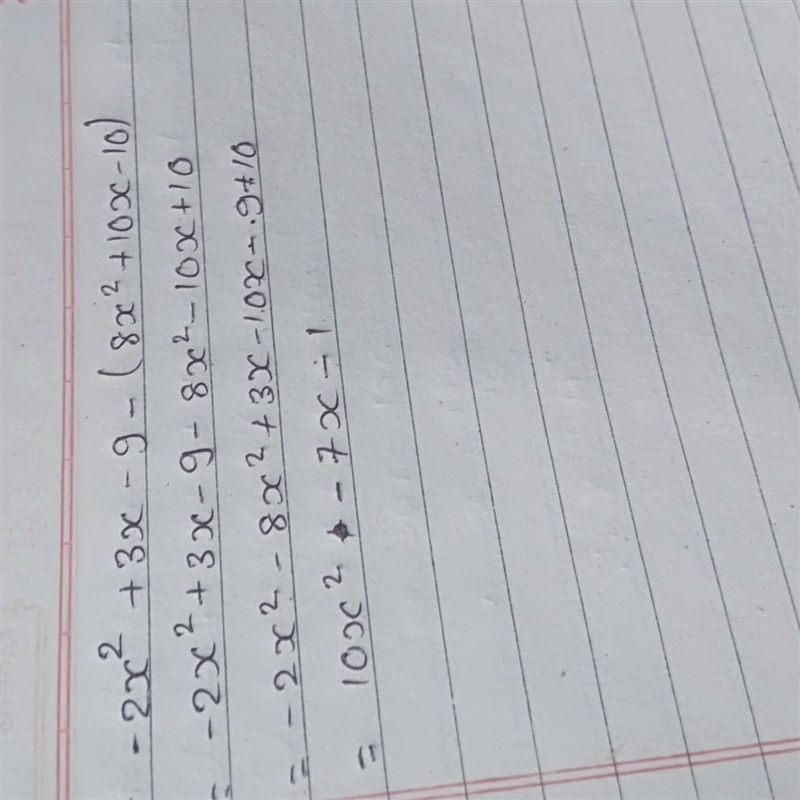 -2x² + 3x - 9 - (8x² + 10x - 10)
= -2x² + 3x - 9 - 8x² - 10x + 10
= -2x² - 8x² + 3x - 10x - 9 + 10
= 10x² - 7x - 1